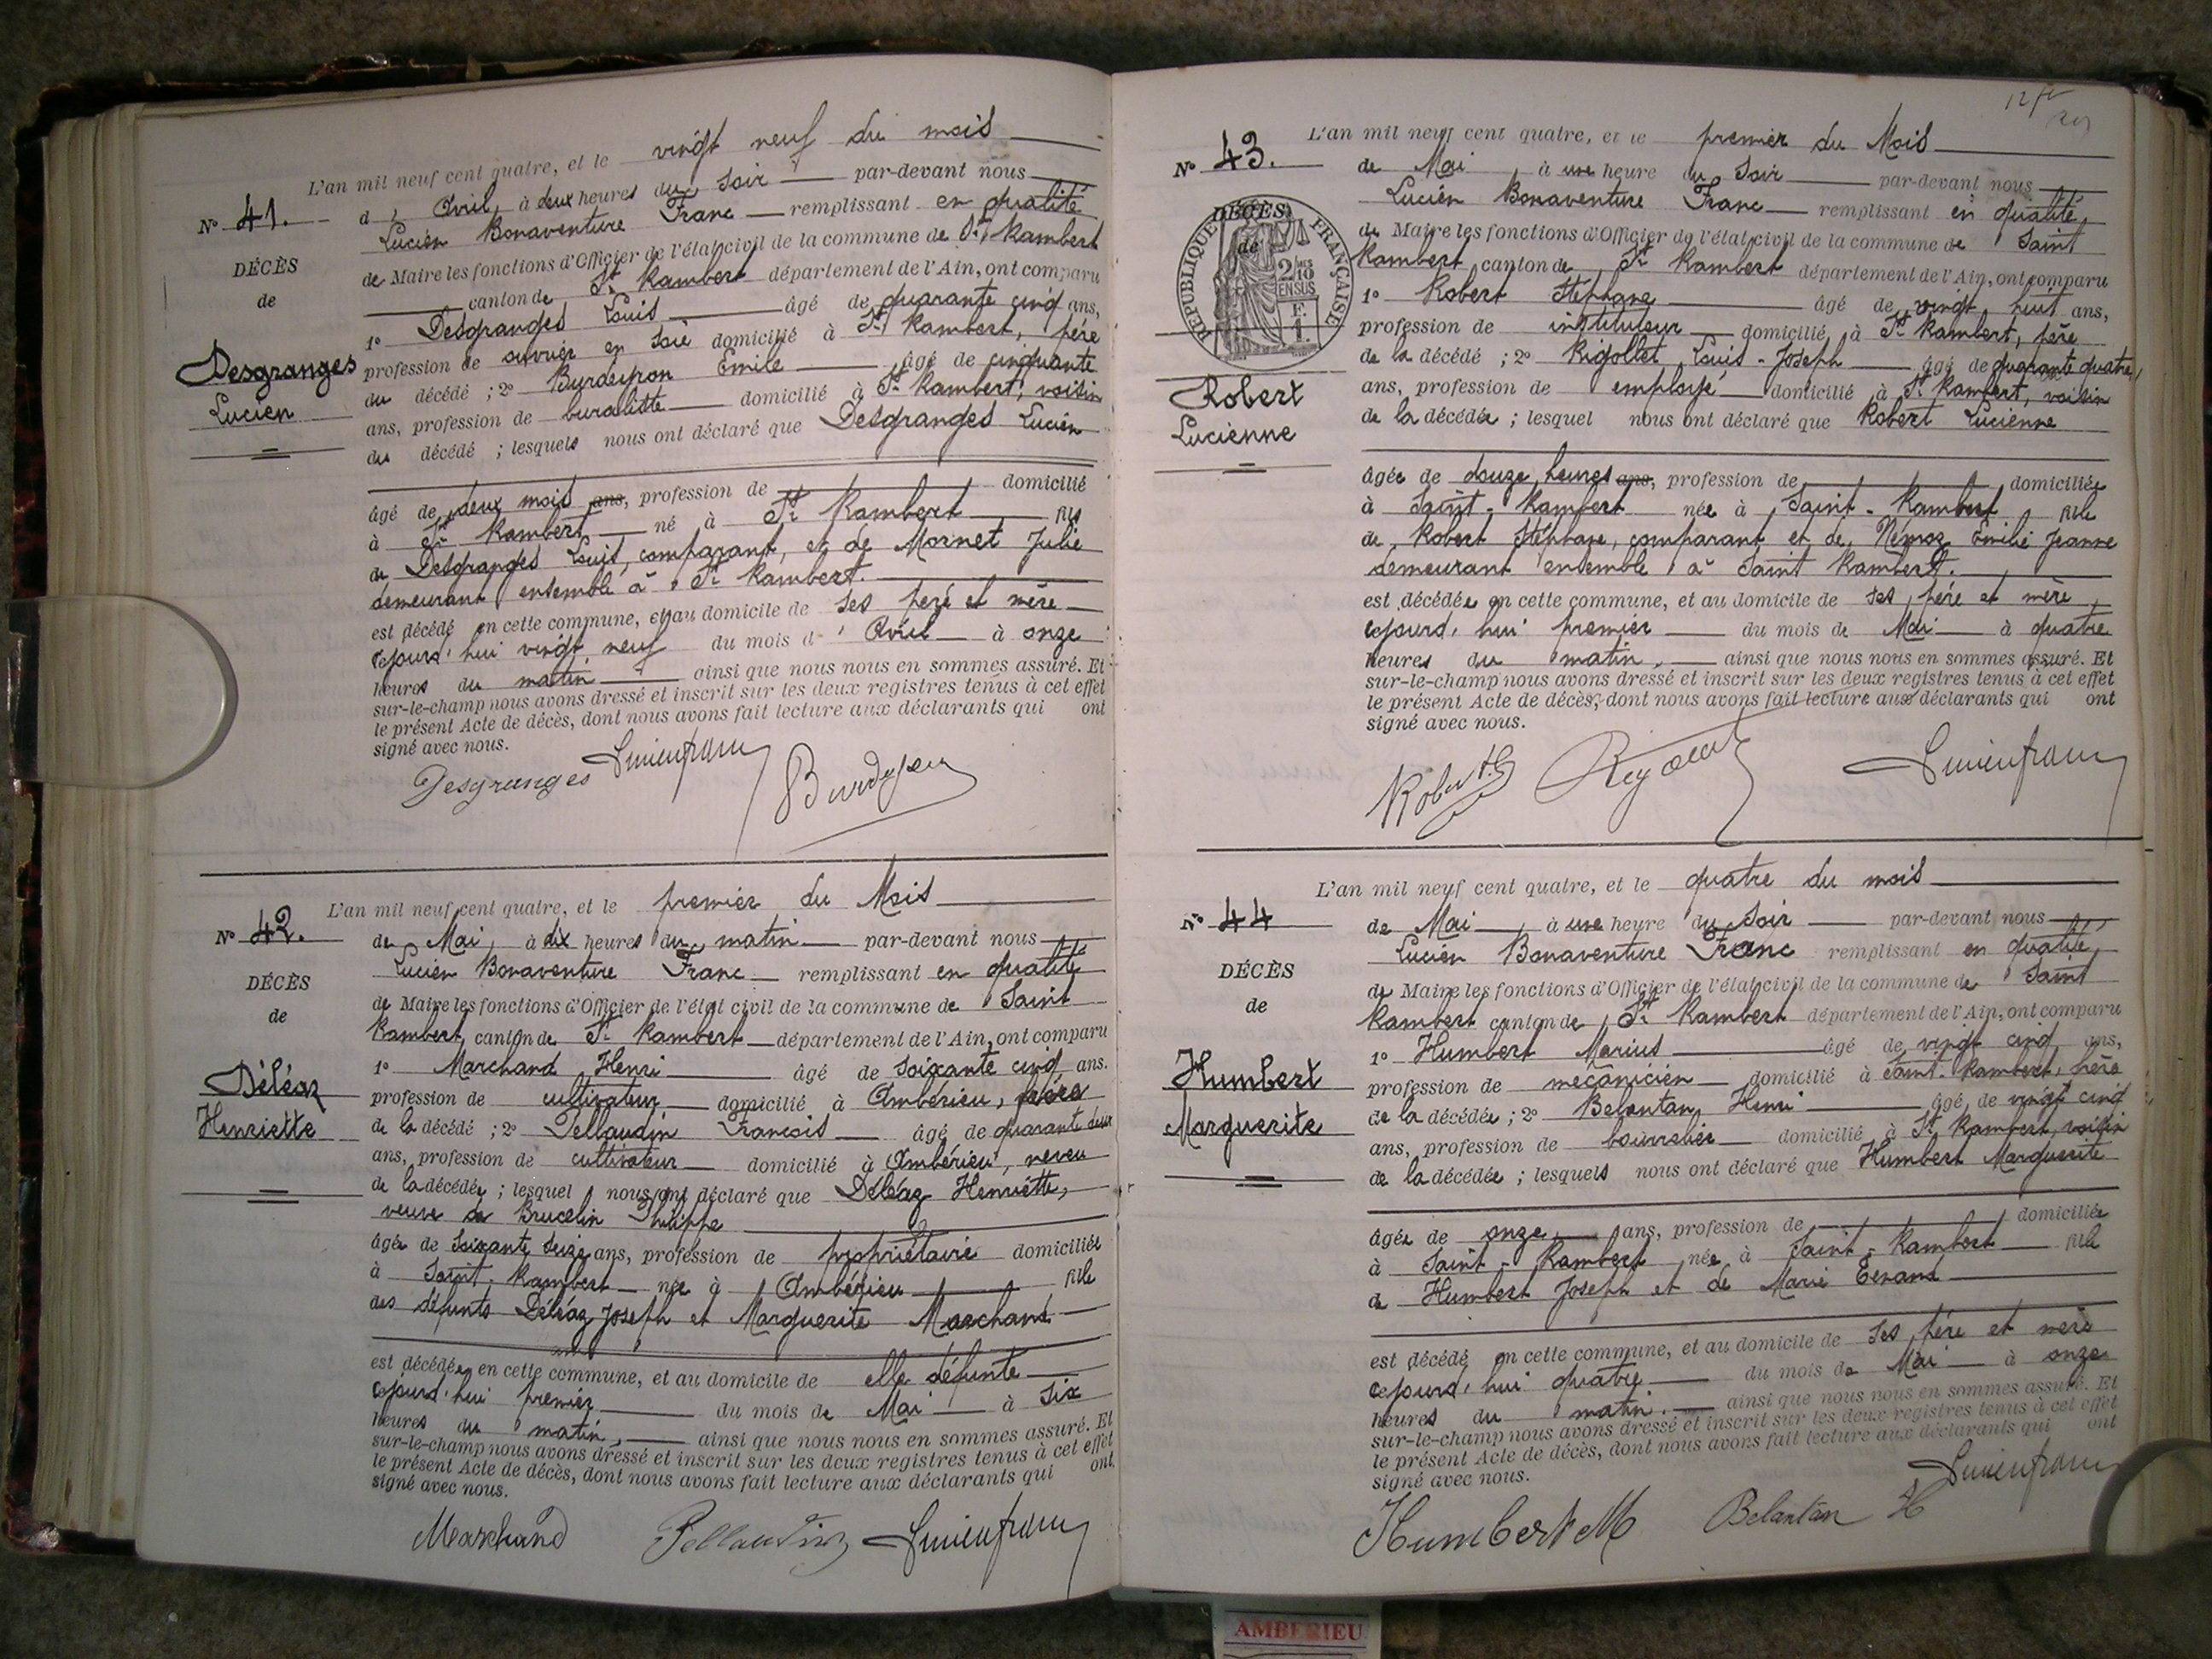 L'an mil neuf cent quatre, et le vingt neuf du mois
N° 41. d' Avril, à deux heures du soir par-devant nous
Lucien Bonaventure Franc remplissant en qualité
de Maire les fonctions d'Officier de l'état civil de la commune de St Rambert
canton de St Rambert département de l'Ain, ont comparu
1° Desgranges Louis âgé de quarante cinq ans,
profession de ouvrier en soie domicilié à St Rambert, père
du décédé ; 2° Burdeyron Emile âgé de cinquante
ans, profession de buraliste domicilié à St Rambert, voisin
du décédé ; lesquels nous ont déclaré que Desgranges Lucien
DÉCÈS
de
Desgranges
Lucien
âgé de deux mois ans, profession de domicilié
à St Rambert né à St Rambert fils
de Desgranges Louis, comparant, et de Mornet Julie
demeurant ensemble à St Rambert.
est décédé en cette commune, et au domicile de ses père et mère
cejourd'hui vingt neuf du mois d' Avril à onze
heures du matin ainsi que nous nous en sommes assuré. Et
sur-le-champ nous avons dressé et inscrit sur les deux registres tenus à cet effet
le présent Acte de décès, dont nous avons fait lecture aux déclarants qui ont
signé avec nous.
Desgranges Lucien franc Burdeyron
L'an mil neuf cent quatre, et le premier du Mois
N° 42. de Mai, à dix heures du matin par-devant nous
Lucien Bonaventure Franc remplissant en qualité
de Maire les fonctions d'Officier de l'état civil de la commune de Saint
Rambert canton de St Rambert département de l'Ain, ont comparu
1° Marchand Henri âgé de soixante cinq ans.
profession de cultivateur domicilié à Ambérieu,
de la décédé ; 2° Pellaudin François âgé de quarante deux
ans, profession de cultivateur domicilié à Ambérieu, neveu
de la décédée ; lesquel nous ont déclaré que Déléaz Henriette,
veuve de Brucelin Philippe
DÉCÈS
de
Déléaz
Henriette
âgée de soixante seize ans, profession de propriétaire domiciliée
à Saint-Rambert née à Ambérieu fille
des défunts Déléaz Joseph et Marguerite Marchand
est décédée en cette commune, et au domicile de elle défunte
cejourd'hui premier du mois de Mai à six
heures du matin, ainsi que nous nous en sommes assuré. Et
sur-le-champ nous avons dressé et inscrit sur les deux registres tenus à cet effet
le présent Acte de décès, dont nous avons fait lecture aux déclarants qui ont
signé avec nous.
Marchand Pellaudin Lucien franc
L'an mil neuf cent quatre, et le premier du Mois
N° 43. de Mai à une heure du soir par-devant nous
Lucien Bonaventure Franc remplissant en qualité
de Maire les fonctions d'Officier de l'état civil de la commune de Saint
Rambert canton de St Rambert département de l'Ain, ont comparu
1° Robert Stéphane âgé de vingt huit ans,
profession de instituteur domicilié à St Rambert, père
de la décédé ; 2° Rigollet Louis-Joseph âgé de quarante quatre
ans, profession de employé domicilié à St Rambert, voisin
de la décédée ; lesquel nous ont déclaré que Robert Lucienne
DÉCÈS
de
RÉPUBLIQUE FRANÇAISE
2/10 EN SUS
F. 1.
Robert
Lucienne
âgée de douze heures ans, profession de domiciliée
à Saint-Rambert née à Saint-Rambert fille
de Robert Stéphane, comparant et de Némoz Emilie Jeanne
demeurant ensemble à Saint Rambert.
est décédée en cette commune, et au domicile de ses père et mère,
cejourd'hui premier du mois de Mai à quatre
heures du matin, ainsi que nous nous en sommes assuré. Et
sur-le-champ nous avons dressé et inscrit sur les deux registres tenus à cet effet
le présent Acte de décès, dont nous avons fait lecture aux déclarants qui ont
signé avec nous.
Robert S Rigollet Lucien franc
L'an mil neuf cent quatre, et le quatre du mois
N° 44 de Mai, à une heure du soir par-devant nous
Lucien Bonaventure Franc remplissant en qualité
de Maire les fonctions d'Officier de l'état civil de la commune de Saint
Rambert canton de St Rambert département de l'Ain, ont comparu
1° Humbert Marius âgé de vingt cinq ans,
profession de mécanicien domicilié à Saint-Rambert, frère
de la décédée ; 2° Belantan Henri âgé de vingt cinq
ans, profession de bourrelier domicilié à St Rambert, voisin
de la décédée ; lesquels nous ont déclaré que Humbert Marguerite
DÉCÈS
de
Humbert
Marguerite
âgée de onze ans, profession de domiciliée
à Saint-Rambert née à Saint-Rambert fille
de Humbert Joseph et de Marie
est décédé en cette commune, et au domicile de ses père et mère
cejourd'hui quatre du mois de Mai à onze
heures du matin. ainsi que nous nous en sommes assuré. Et
sur-le-champ nous avons dressé et inscrit sur les deux registres tenus à cet effet
le présent Acte de décès, dont nous avons fait lecture aux déclarants qui ont
signé avec nous.
Lucien franc
Humbert M Belantan H
AMBERIEU